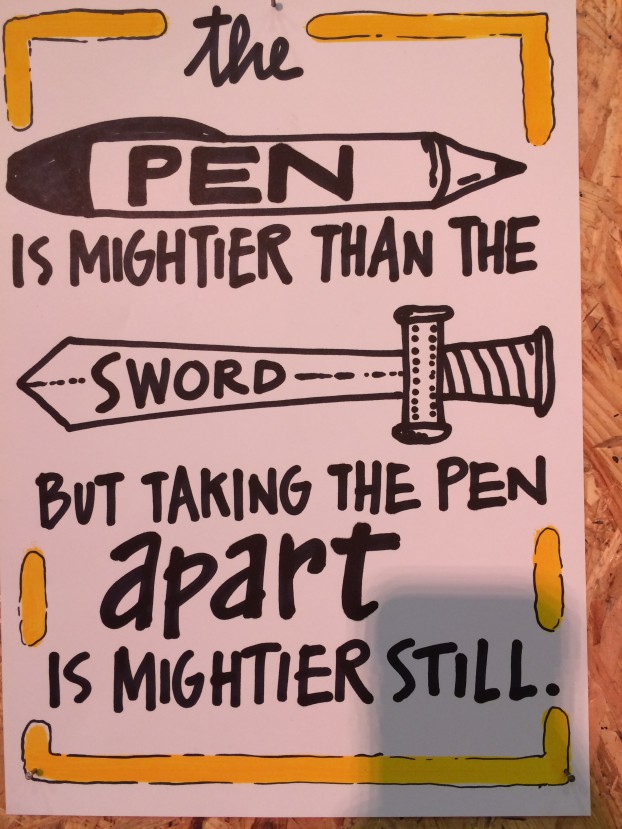 the
PEN
IS MIGHTIER THAN THE
SWORD
BUT TAKING THE PEN
apart
IS MIGHTIER STILL.